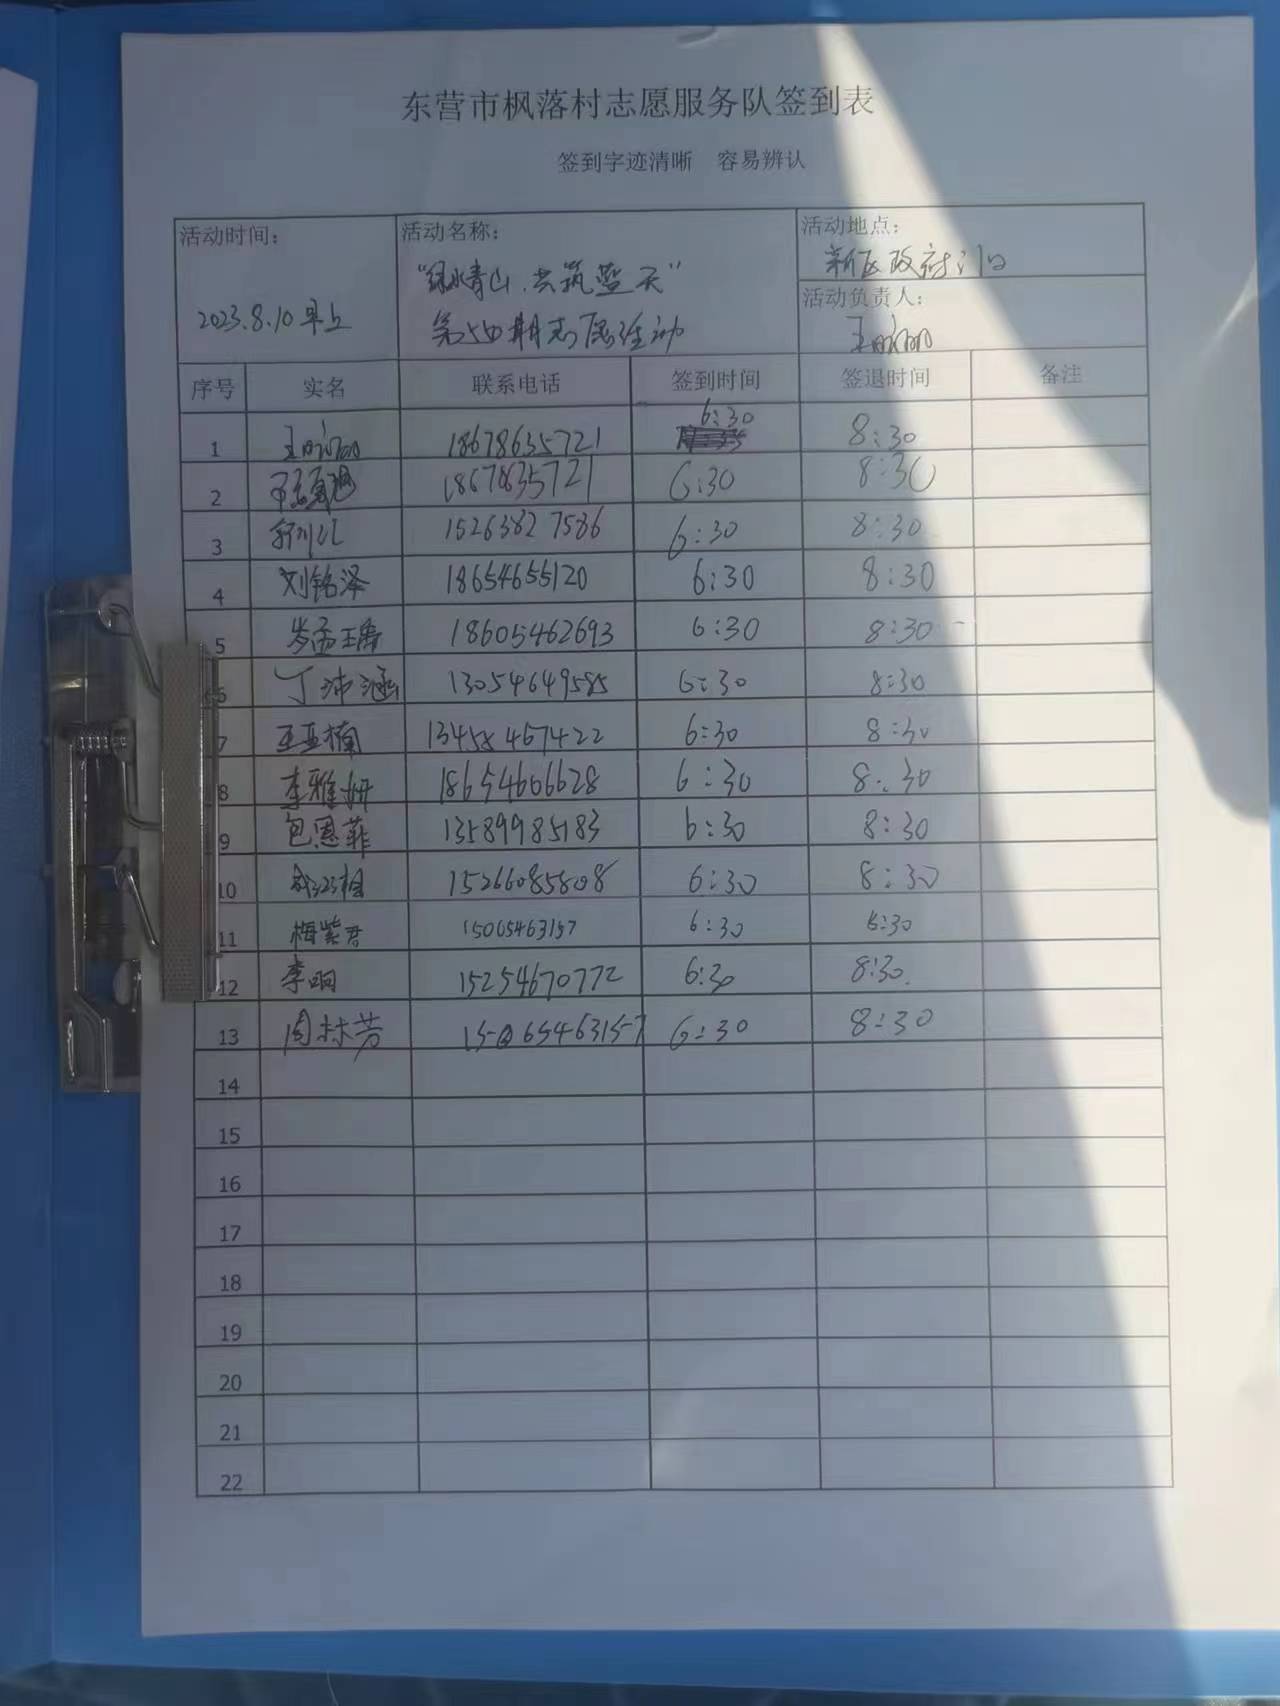 东营市枫落村志愿服务队签到表
签到字迹清晰 容易辨认
活动时间: 2023.8.10 早上
活动名称: "绿水青山.共筑蓝天"
第54期志愿活动
活动地点: 新区政府门口
活动负责人:
序号 实名 联系电话 签到时间 签退时间 备注
1 18678635721 6:30 8:30
2 18678635721 6:30 8:30
3 15263827586 6:30 8:30
4 刘铭泽 18654655120 6:30 8:30
5 18605462693 6:30 8:30
6 丁沛涵 13054649585 6:30 8:30
7 王亚楠 6:30 8:30
8 李雅妍 18654606628 6:30 8:30
9 包恩菲 13589985183 6:30 8:30
10 15266085808 6:30 8:30
11 梅紫君 15065463157 6:30 8:30
12 李响 15254670772 6:30 8:30
13 周林芳 15065463157 6:30 8:30
14
15
16
17
18
19
20
21
22